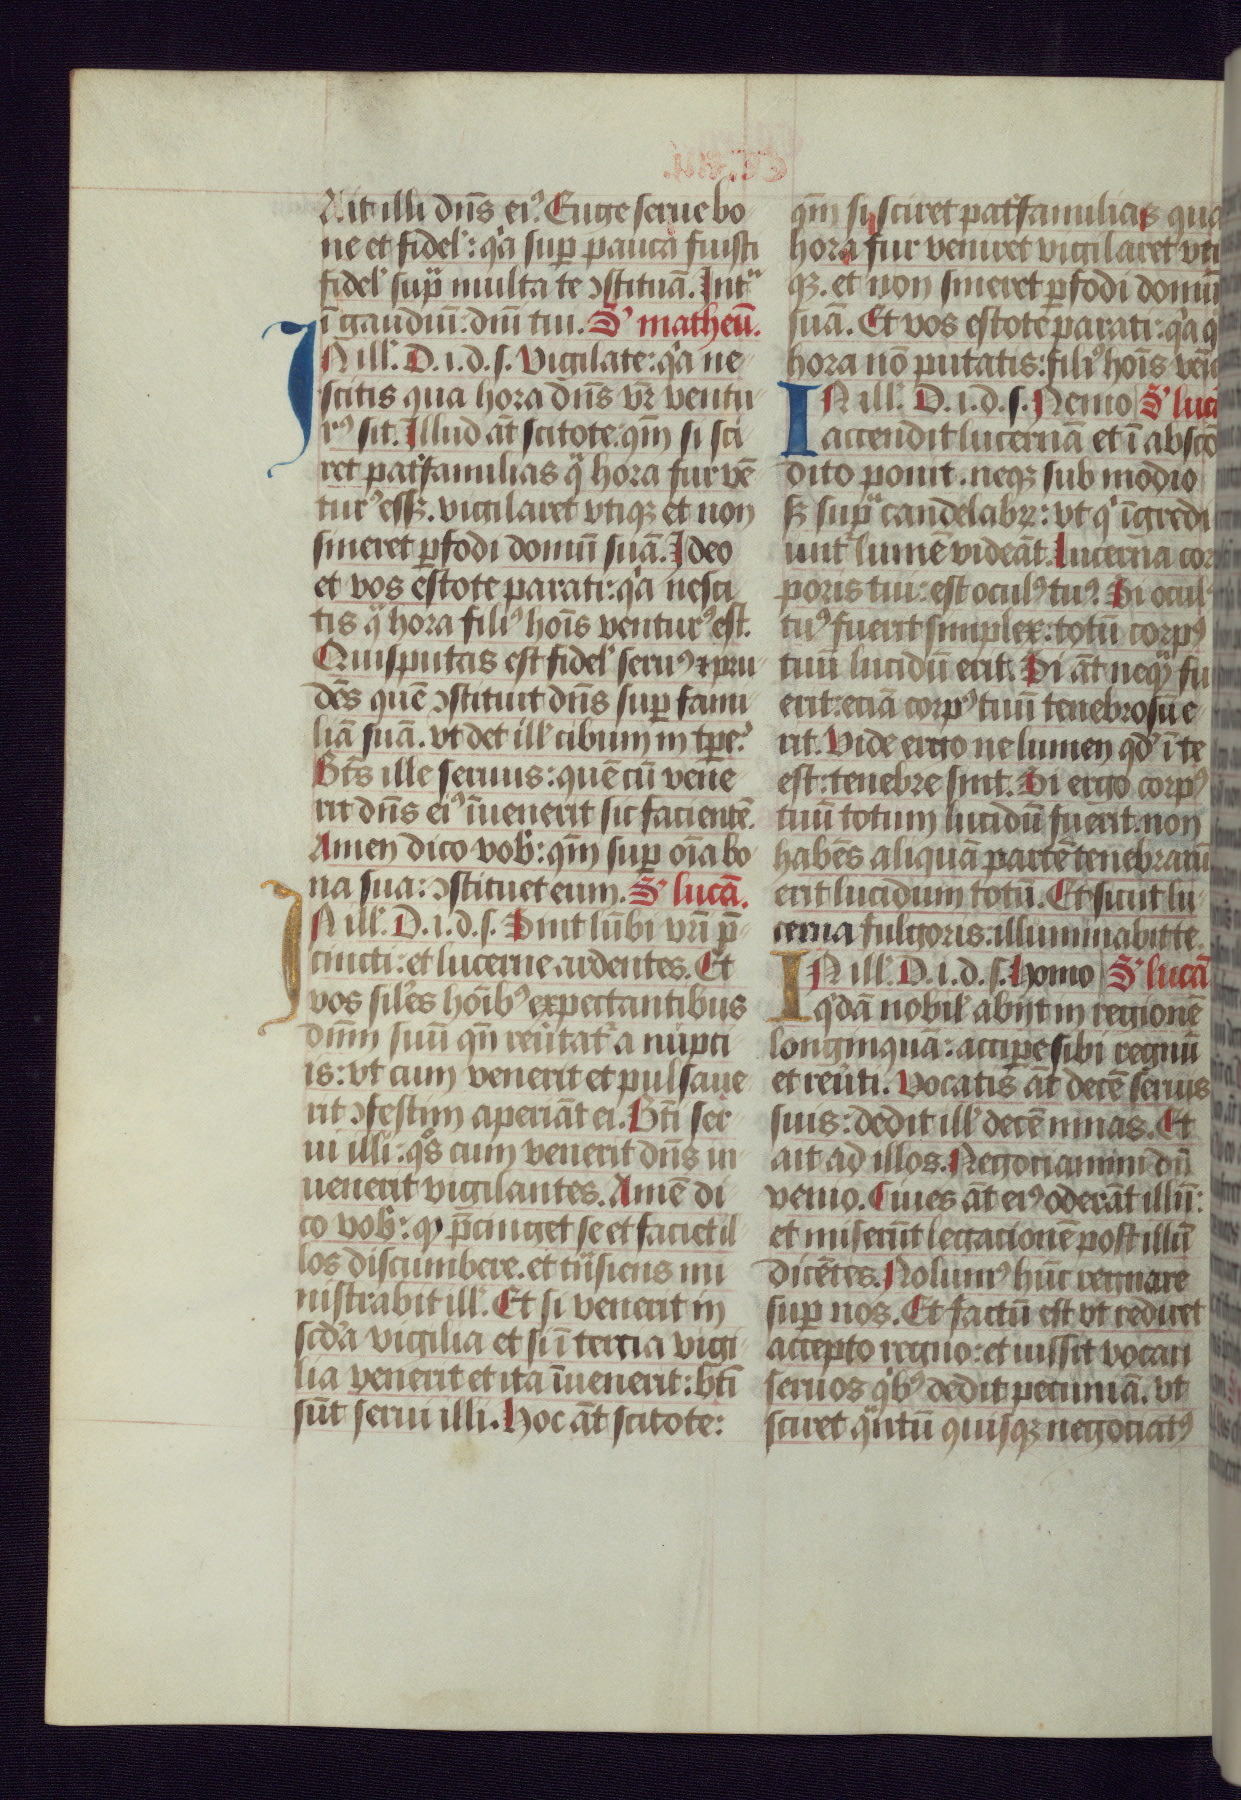 Ait illi dn̄s eiꝰ Euge serue bo
ne et fidelˀ: qͥa suꝑ pauca fuisti
fidelˀ supͣ multa te ↄstituā. Intͣ
ī gaudiū. dnī tui. Sˀ matheū.
IN illˀ. D. i. d. s. Vigilate: qͥa ne
scitis qua hora dn̄s vr̄ ventu
rꝰ sit. Illud āt scitote. qm̄ si sci
ret patˀfamilias qͣ hora fur vē
turꝰ essꝫ. vigilaret vtiqꝫ et non
sineret ꝑfodi domū suā. Ideo
et vos estote parati: qͥa nesci
tis qͣ hora filiꝰ hoīs venturꝰ est.
Quisputas est fidelˀ seruꝰ ⁊ pru
dēs quē ↄstituit dn̄s suꝑ fami
liā suā. vt det illˀ cibum in tꝑe.
Bt̄s ille seruus: quē cū vene
rit dn̄s eiꝰ īuenerit sic facientē.
Amen dico vobˀ: qm̄ suꝑ oīa bo
na sua: ↄstituet eum. Sˀ lucā.
IN illˀ. D. i. d. s. Sint lūbi vrī p̄
cincti: et lucerne ardentes. Et
vos siłes hoībꝰ expectantibus
dnm̄ suū qn̄ reūtatˀ a nupti
is: vt cum venerit et pulsaue
rit ↄfestim aperiāt ei. Bt̄i ser
ui illi: qͦs cum venerit dn̄s in
uenerit vigilantes. Amē di
co vobˀ: ꝙ p̄cinget se et faciet il
los discumbere. et trͣsiens mi
nistrabit illˀ. Et si venerit in
scdͣa vigilia et si ī tercia vigi
lia venerit et ita īuenerit: bt̄i
sūt serui illi. Hoc āt scitote:
qm̄ si sciret patˀfamilias qua
hora fur veniret vigilaret vti
qꝫ. et non sineret ꝑfodi domū
suā. Et vos estote parati: qͥa qͣ
hora nō putatis: filiꝰ hoīs venͥ
IN illˀ. D. i. d. s. Nemo Sˀ lucā
accendit lucernā et ī abscō
dito ponit. neqꝫ sub modio
sꝫ supͣ candelabrꝝ: vt qͥ īgredi
untˀ lumē videāt. Lucerna cor
poris tui: est oculꝰ tuꝰ. Si oculꝰ
tuꝰ fuerit simplex: totū corpꝰ
tuū lucidū erit. Si āt neqͣ fu
erit: eciā corpꝰ tuū tenebrosū e
rit. Vide ergo ne lumen qđ ī te
est: tenebre sint. Si ergo corpꝰ
tuū totum lucidū fuerit. non
habēs aliquā partē tenebrarū
erit lucidum totū. Et sicut lu
cerna fulgoris: illuminabitte.
IN illˀ. D. i. d. s. Homo Sˀ lucā
qͥdā nobilˀ abijt in regionē
longinquā: accipe sibi regnū
et reūti. Vocatis āt decē seruis
suis: dedit illˀ decē mnas. Et
ait ad illos. Negociamini dū
venio. Ciues āt eiꝰ oderāt illū:
et miserūt legacionē post illū
dicētes. Nolumꝰ hūc regnare
suꝑ nos. Et factū est vt rediret
accepto regno: et iussit vocari
seruos qͥbꝰ dedit pecuniā. vt
sciret qͣntū quisqꝫ negociatꝰ